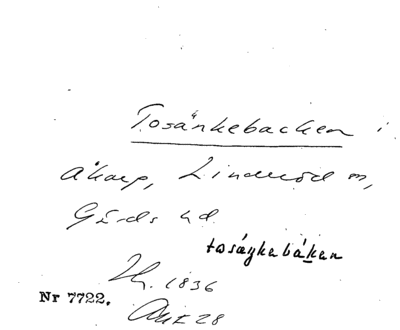 Tosänkebacken i
Åkarp, Linderöd sn,
Gärds hd.
tosäŋkebakan
Zh. 1836
Nr 7722.
AUF 28